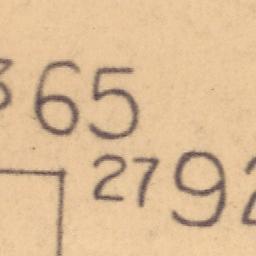 365
2792